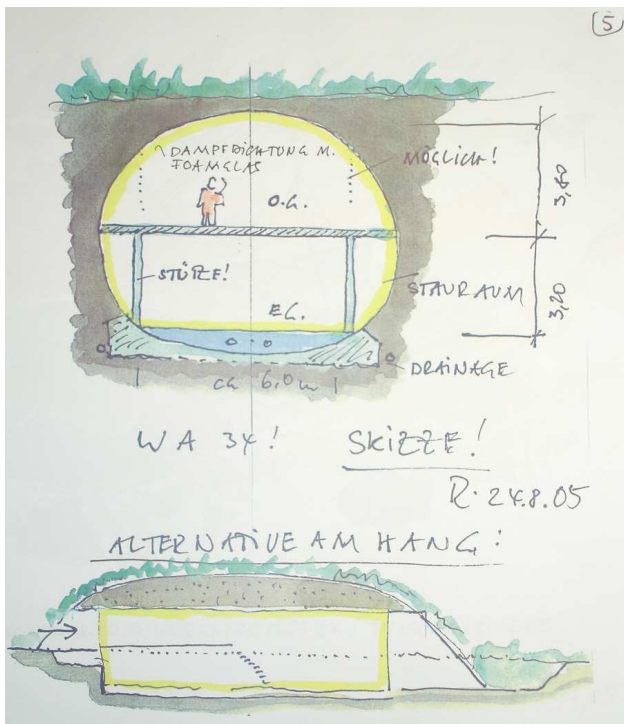 5
DAMPFDICHTUNG M.
FOAMGLAS
MÖGLICH!
O.G.
3,60
STÜTZE!
STAURAUM
EG.
3,20
DRAINAGE
ca 6.0 m
WA 34! SKIZZE!
R. 24.8.05
ALTERNATIVE AM HANG: